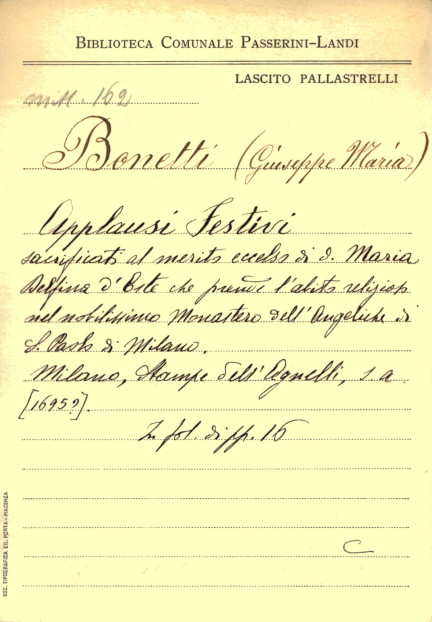 BIBLIOTECA COMUNALE PASSERINI-LANDI
LASCITO PALLASTRELLI
Mill. 162
Bonetti (Giuseppe Maria)
Applausi Festivi
sacrificati al merito eccelso di d. Maria
Delfina d'Este che prende l'abito religioso
nel nobilissimo Monastero dell'Angeliche di
S. Paolo di Milano.
Milano, Stampe dell'Agnelli, s. a
[1695?].
In fol. di pp. 16
C
SOC. TIPOGRAFICA ED. PORTA - PIACENZA